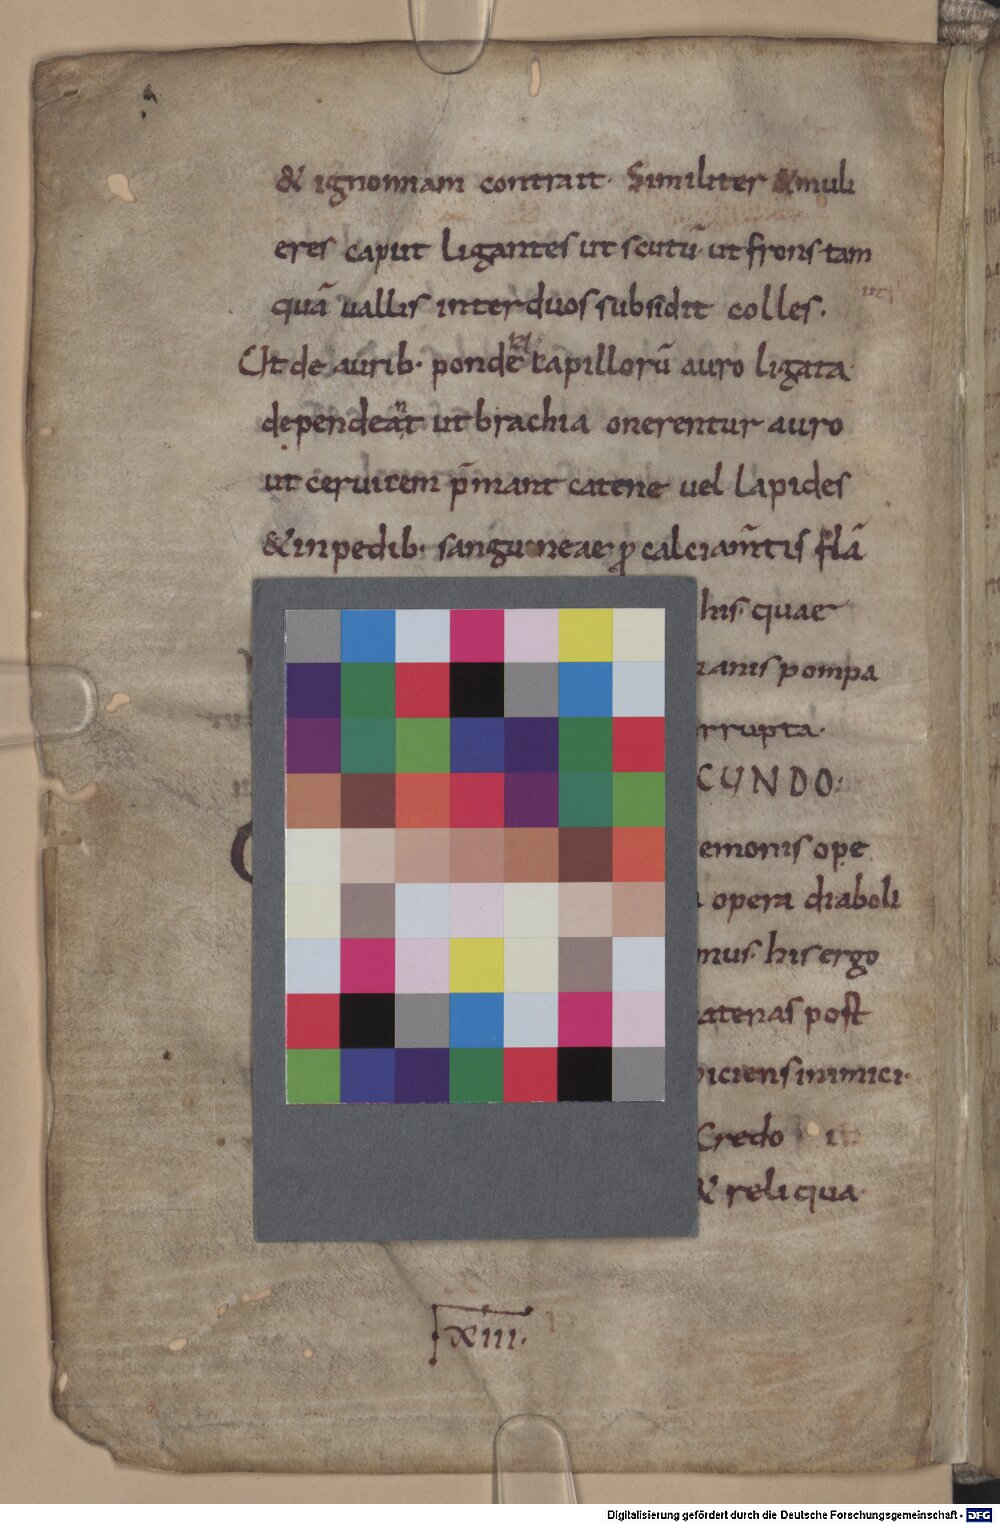 & ignominiam contrait. Similiter & muli
eres caput ligantes ut scutū ut frons tam
quā uallis inter duos subsidit colles.
Ut de aurib. pondera capillorū auro ligata
dependeant ut brachia onerentur auro
ut ceruicem p̄mant catene uel lapides
& in pedib. sanguineae p calciam̄tis flā
his quae
anis pompa
rrupta.
CUNDO.
emonis ope
opera diaboli
mus. his ergo
aternas post
iciens inimici.
Credo in
& reliqua
xiii.
Digitalisierung gefördert durch die Deutsche Forschungsgemeinschaft - DFG